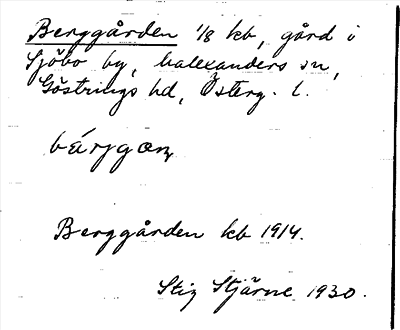 Berggården 1/8 kb, gård i
Sjöbo by, Kalexanders sn,
Göstrings hd, Österg. l.
Berggården kb 1914.
Stig Stjärne 1930.